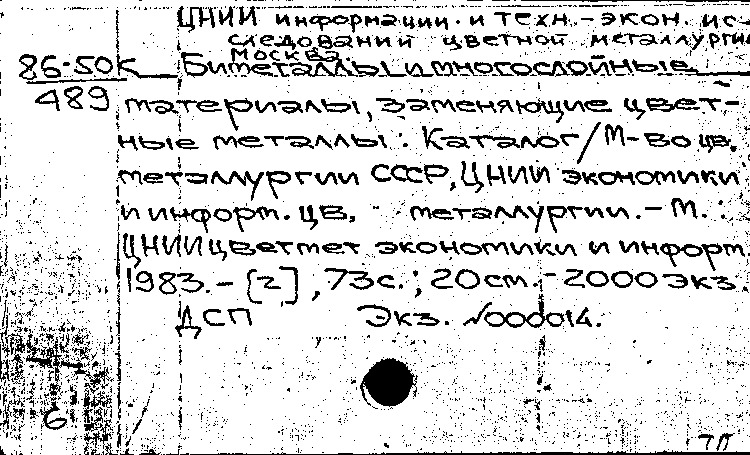 ЦНИИ информации и техн.-экон. ис-
следований цветной металлургии
Москва
86-50К Биметаллы и многослойные
489 материалы, заменяющие цвет-
ные металлы: Каталог/М-во цв.
металлургии СССР, ЦНИИ экономики
и информ. цв. металлургии.-М.:
ЦНИИцветмет экономики и информ.
1983.-[2], 73с.; 20см.-2000экз.
ДСП Экз. №000014.
6
ТП